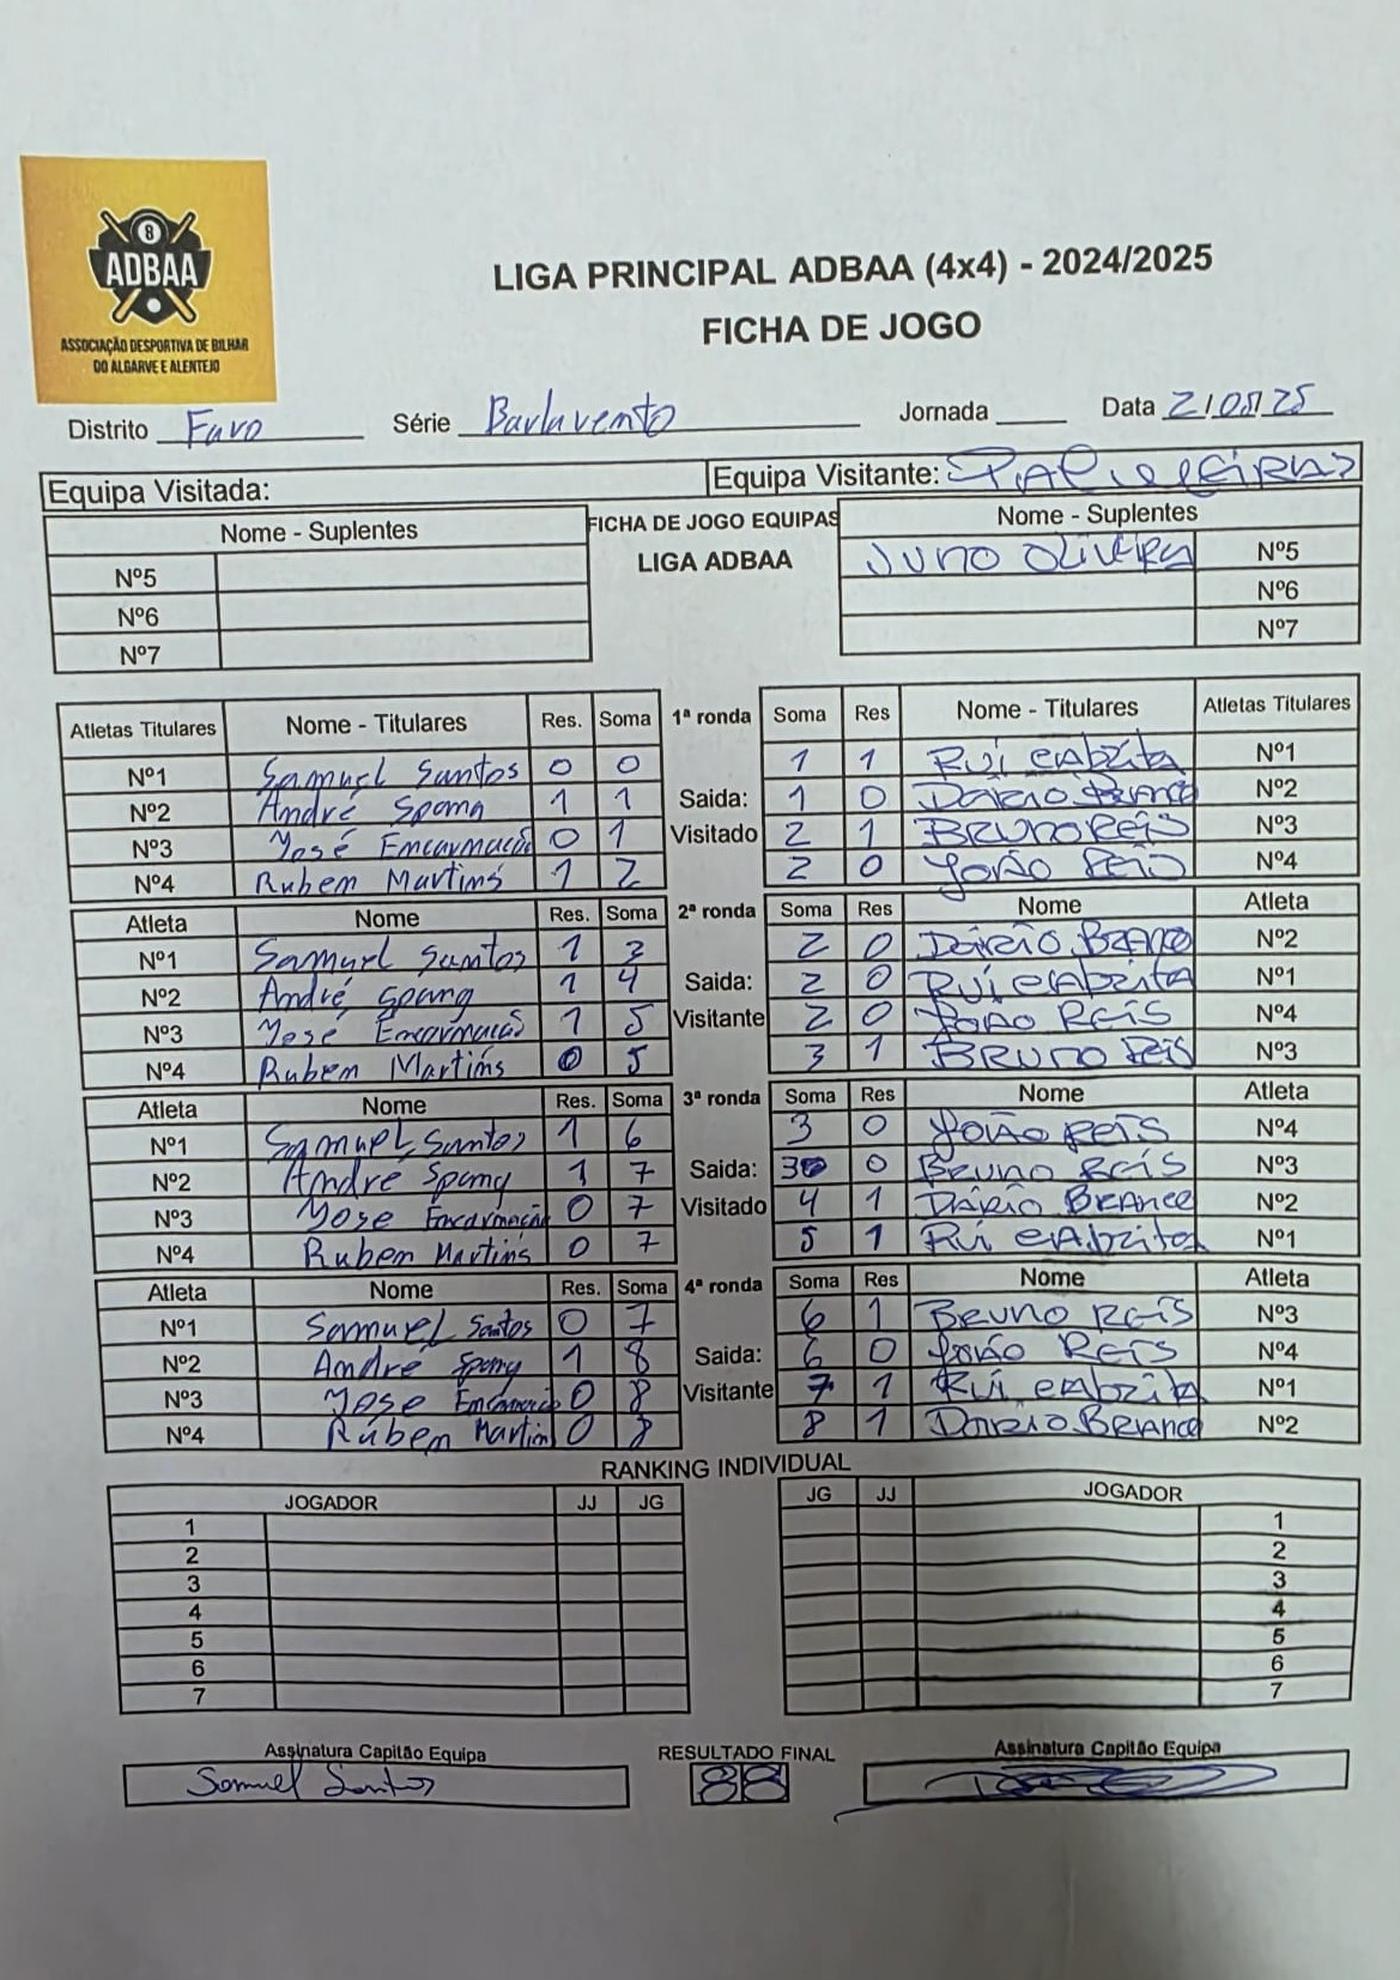 8
ADBAA
ASSOCIAÇÃO DESPORTIVA DE BILHAR
DO ALGARVE E ALENTEJO
LIGA PRINCIPAL ADBAA (4x4) - 2024/2025
FICHA DE JOGO
Distrito Faro Série Barlavento Jornada ____ Data 2/05/25
Equipa Visitada: Equipa Visitante: Palmeiras
Nome - Suplentes FICHA DE JOGO EQUIPAS Nome - Suplentes
LIGA ADBAA
Nº5 Juno Oliveira Nº5
Nº6 Nº6
Nº7 Nº7
Atletas Titulares Nome - Titulares Res. Soma 1ª ronda Soma Res Nome - Titulares Atletas Titulares
Nº1 Samuel Santos 0 0 1 1 Rui Cabrita Nº1
Nº2 André 1 1 Saida: 1 0 Dário Branco Nº2
Nº3 José Encarnação 0 1 Visitado 2 1 Bruno Reis Nº3
Nº4 Rubem Martins 1 2 2 0 João Reis Nº4
Atleta Nome Res. Soma 2ª ronda Soma Res Nome Atleta
Nº1 Samuel Santos 1 3 2 0 Dário Branco Nº2
Nº2 André 1 4 Saida: 2 0 Rui Cabrita Nº1
Nº3 José Encarnação 1 5 Visitante 2 0 João Reis Nº4
Nº4 Rubem Martins 0 5 3 1 Bruno Reis Nº3
Atleta Nome Res. Soma 3ª ronda Soma Res Nome Atleta
Nº1 Samuel Santos 1 6 3 0 João Reis Nº4
Nº2 André 1 7 Saida: 3 0 Bruno Reis Nº3
Nº3 Jose Encarnação 0 7 Visitado 4 1 Dário Branco Nº2
Nº4 Rubem Martins 0 7 5 1 Rui Cabrita Nº1
Atleta Nome Res. Soma 4ª ronda Soma Res Nome Atleta
Nº1 Samuel Santos 0 7 6 1 Bruno Reis Nº3
Nº2 André 1 8 Saida: 6 0 João Reis Nº4
Nº3 Jose 0 8 Visitante 7 1 Rui Cabrita Nº1
Nº4 Rubem Martins 0 8 8 1 Dário Branco Nº2
RANKING INDIVIDUAL
JOGADOR JJ JG JG JJ JOGADOR
1 1
2 2
3 3
4 4
5 5
6 6
7 7
Assinatura Capitão Equipa RESULTADO FINAL Assinatura Capitão Equipa
Samuel Santos 8 8